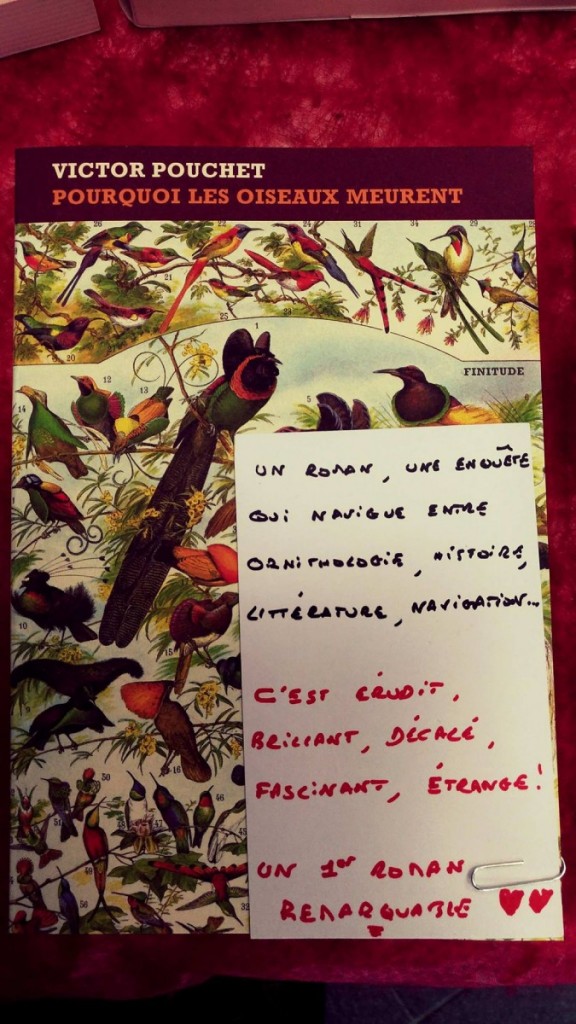 VICTOR POUCHET
POURQUOI LES OISEAUX MEURENT
26
22
24
31
29
34
21
25
23
20
1
FINITUDE
12
13
14
5
UN ROMAN, UNE ENQUÊTE
QUI NAVIGUE ENTRE
ORNITHOLOGIE, HISTOIRE,
LITTÉRATURE, NAVIGATION...
10
15
C'EST ÉRUDIT,
BRILLANT, DÉCALÉ,
FASCINANT, ÉTRANGE!
16
50
UN 1er ROMAN
REMARQUABLE
32